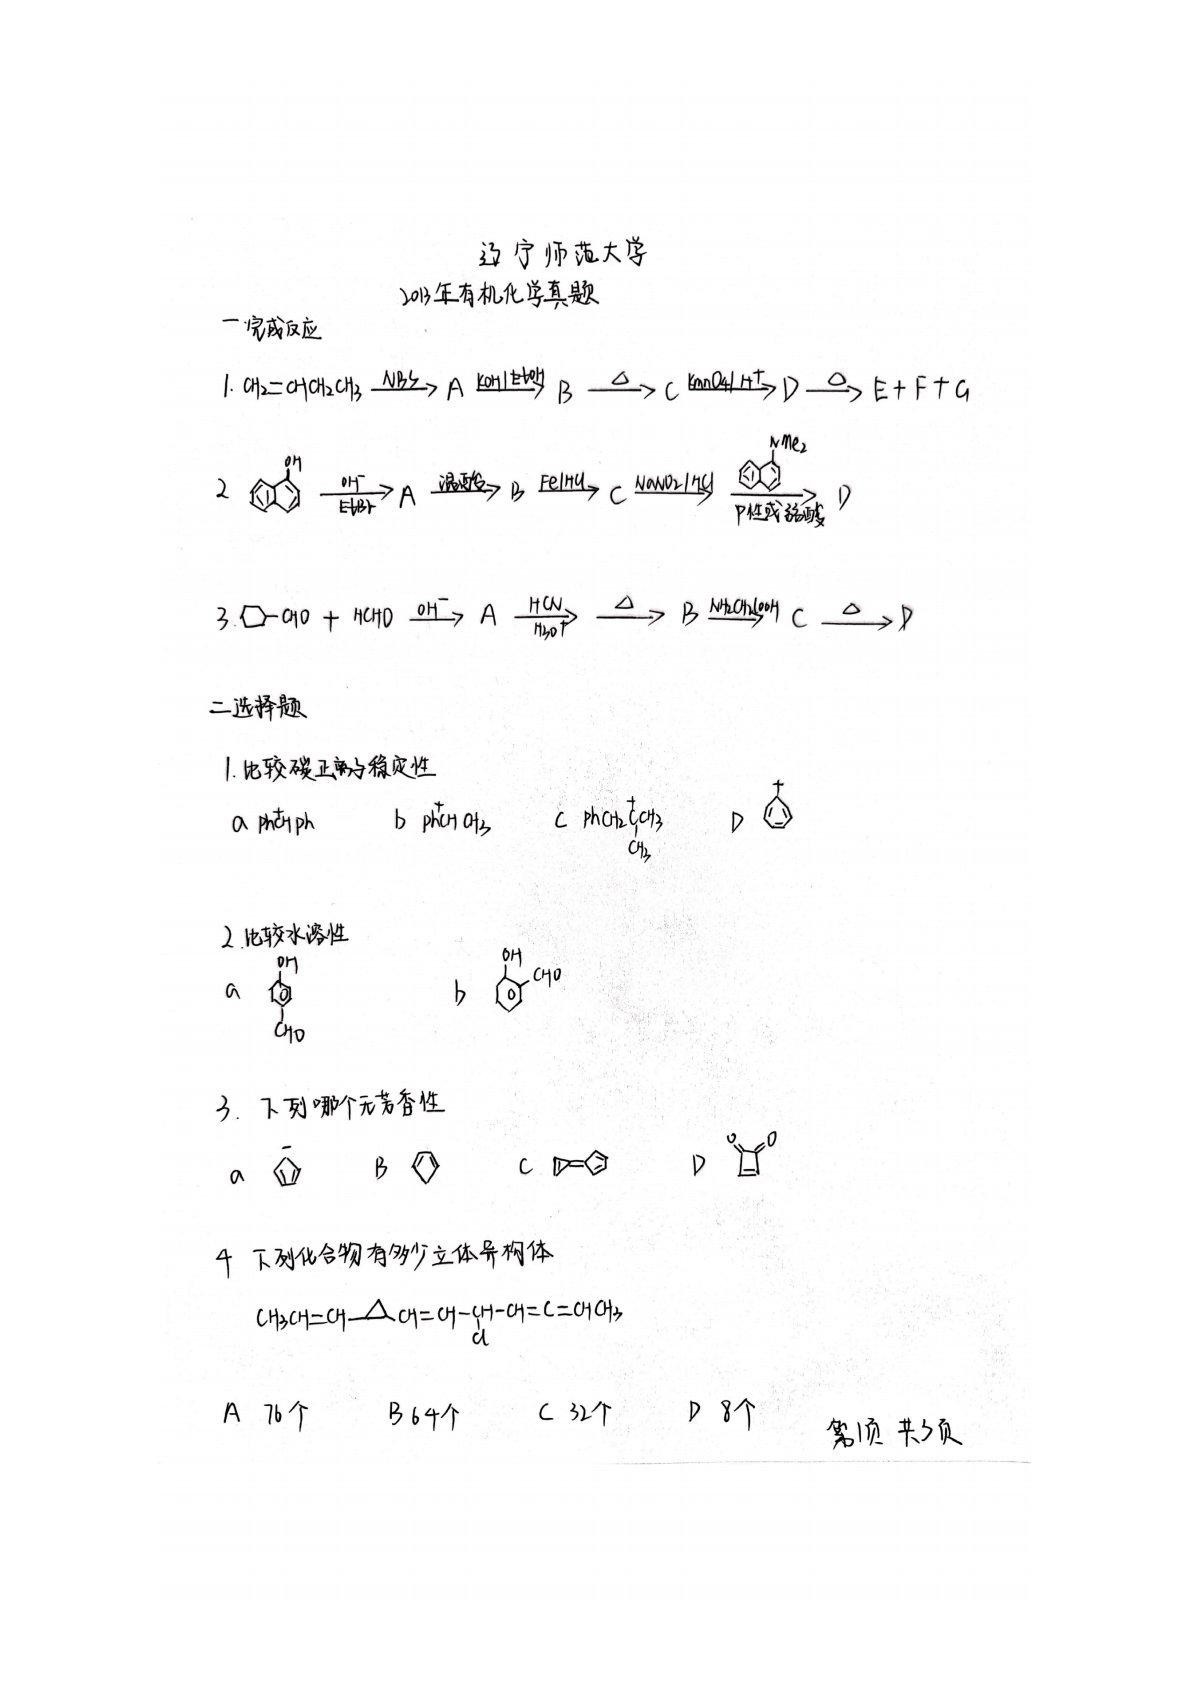 辽宁师范大学
2013年有机化学真题
一 完成反应
1. CH2=CHCH2CH3 NBS A KOH/EtOH B △ C KmnO4/H+ D △ E+F+G
2 OH OH- EtBr A 混酸 B Fe/HCl C NaNO2/HCl NMe2 中性或弱酸 D
3. CHO + HCHO OH- A HCN H3O+ △ B NH2CH2COOH C △ D
二 选择题
1. 比较碳正离子稳定性
a ph+CHph b ph+CHCH3 C phCH2+CCH3 CH3 D +
2. 比较水溶性
a OH CHO b OH CHO
3. 下列哪个无芳香性
a - B C D O O
4 下列化合物有多少立体异构体
CH3CH=CH-△-CH=CH-CH-CH=C=CHCH3
Cl
A 76个 B 64个 C 32个 D 8个
第1页 共3页